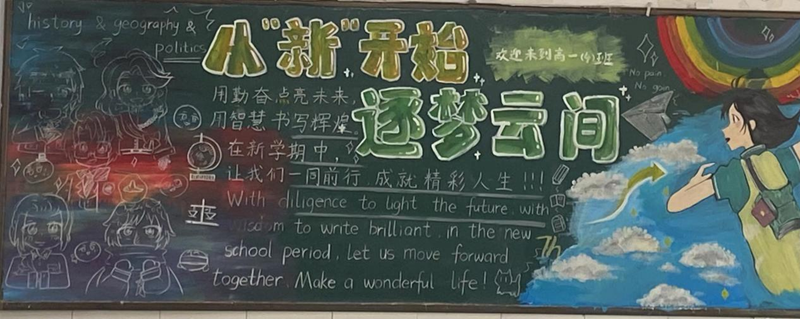 history & geography &
politics
从"新"开始
欢迎来到高一(9)班
No pain
No gain
逐梦云间
用勤奋点亮未来,
用智慧书写辉煌
在新学期中,
让我们一同前行 成就精彩人生!!!
With diligence to light the future, with
wisdom to write brilliant, in the new
school period, let us move forward
together. Make a wonderful life!